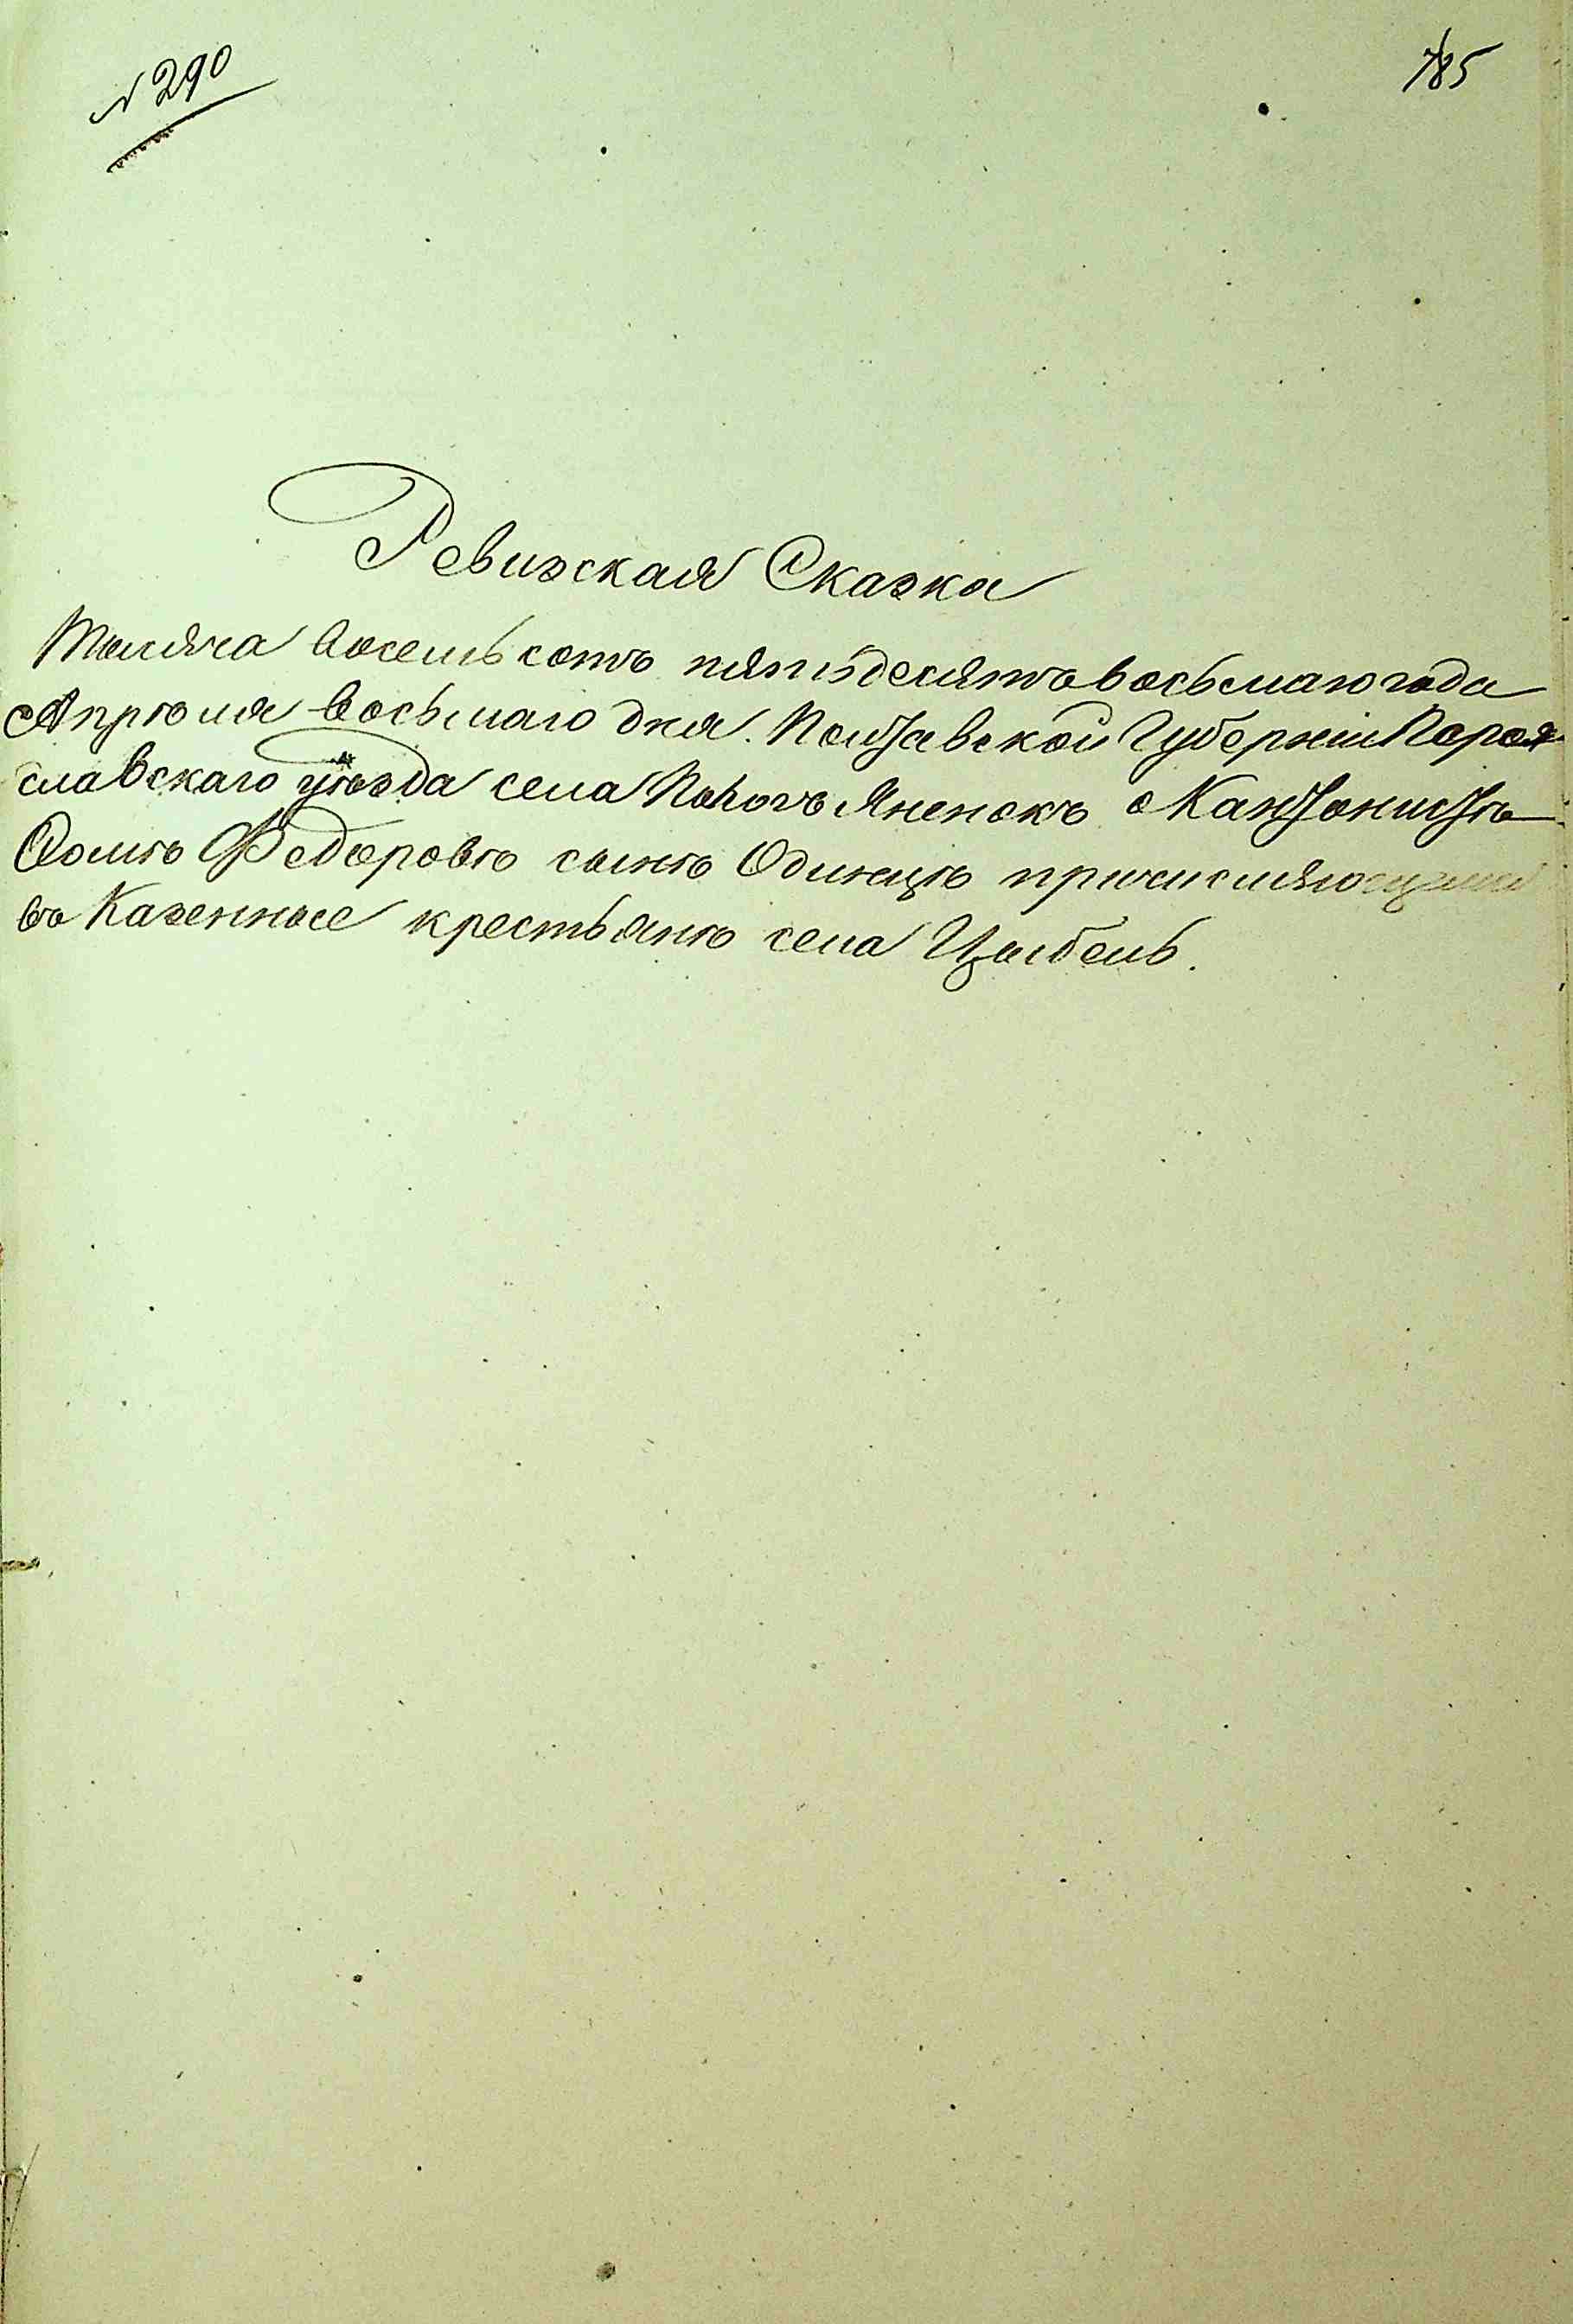 № 290
785
Ревизская Сказка
Тысяча восемь сотъ пятьдесятъ восьмаго года
Апрѣля восьмаго дня. Полтавской Губерніи Перея
славскаго уѣзда села Яненокъ о Кантонистѣ
Ѳомѣ Ѳедоровѣ сынѣ Одинцѣ причисляющемся
въ Казенные крестьянѣ села Цыбель.